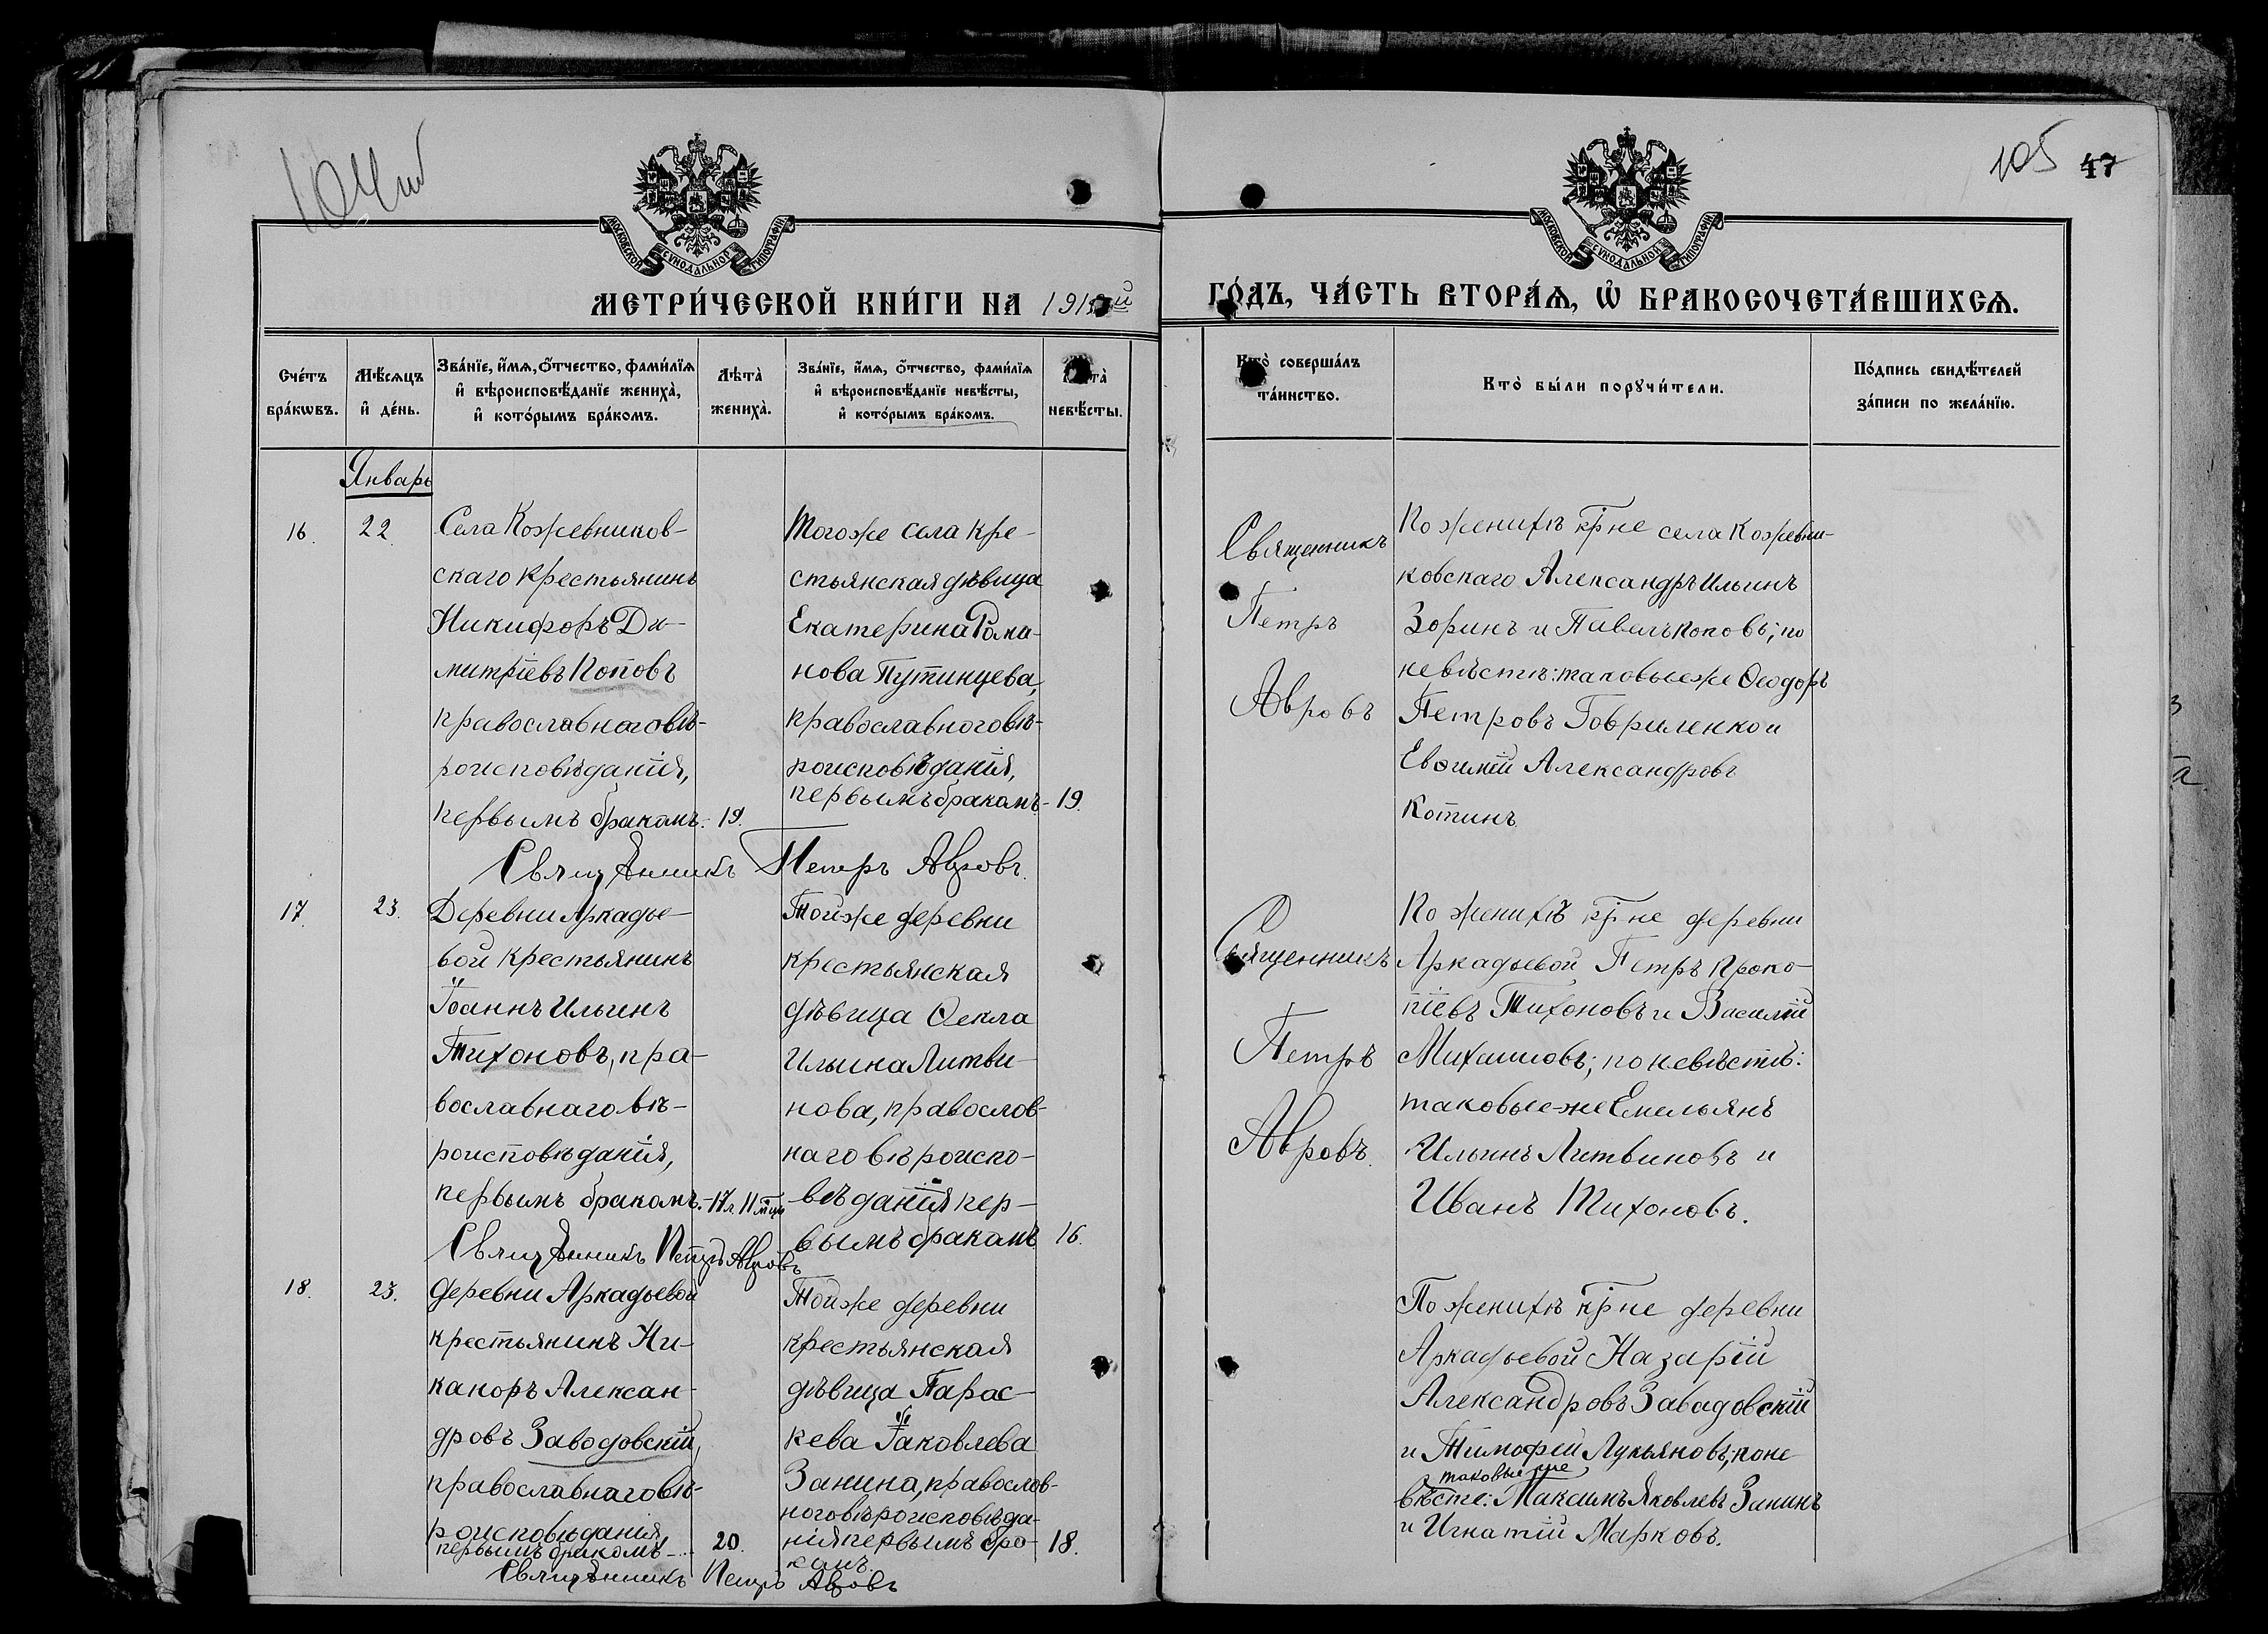 104 об
105 47
МОСКОВСКОЙ СѴНОДАЛЬНОЙ ТИПОГРАФІИ
МОСКОВСКОЙ СѴНОДАЛЬНОЙ ТИПОГРАФІИ
МЕТРИ́ЧЕСКОЙ КНИ́ГИ НА 191 й
ГО́ДЪ, ЧА́СТЬ ВТОРА́Ѧ, Ѡ҆ БРАКОСОЧЕТА́ВШИХСѦ.
Сче́тъ
бра́кѡвъ.
Мѣ́сѧцъ
и҆ де́нь.
Зва́нїе, и҆́мѧ, ѻ҆́тчество, фами́лїѧ
и҆ вѣроисповѣ́данїе жениха̀,
и҆ кото́рымъ бра́комъ.
Лѣта̀
жениха̀.
Зва́нїе, и҆́мѧ, ѻ҆́тчество, фами́лїѧ
и҆ вѣроисповѣ́данїе невѣ́сты,
и҆ кото́рымъ бра́комъ.
Лѣта̀
невѣ́сты.
Кто̀ соверша́лъ
та́инство.
Кто̀ бы́ли порꙋчи́тели.
По́дпись свидѣ́телей
за́писи по жела́нїю.
Январь
16.
22.
Села Кожевников-
скаго крестьянинъ
Никифоръ Ди-
митріевъ Поповъ
православнаго вѣ-
роисповѣданія,
первымъ бракомъ.-
19.
Тогоже села кре-
стьянская дѣвица
Екатерина Рома-
нова Путинцева,
православнаго вѣ-
роисповѣданія,
первымъ бракомъ.-
19.
Священникъ
Петръ
Авровъ
По женихѣ кр-не села Кожевни-
ковскаго Александръ Ильинъ
Зоринъ и Павелъ Поповъ; по
невѣстѣ: таковые же Ѳеодоръ
Петровъ Гавриленко и
Евѳимій Александровъ
Котинъ
Священникъ Петръ Авровъ.
17.
23.
Деревни Аркадье-
вой крестьянинъ
Іоаннъ Ильинъ
Тихоновъ, пра-
вославнаго вѣ-
роисповѣданія,
первымъ бракомъ.-
17 л. 11 мцъ
Тойже деревни
крестьянская
дѣвица Ѳекла
Ильина Литви-
нова, православ-
наго вѣроиспо-
вѣданія пер-
вымъ бракомъ
16.
Священникъ
Петръ
Авровъ.
По женихѣ кр-не деревни
Аркадьевой Петръ Проко-
піевъ Тихоновъ и Василій
Михаиловъ; по невѣстѣ:
таковые-же Емельянъ
Ильинъ Литвиновъ и
Иванъ Тихоновъ.
Священникъ Петръ Авровъ
18.
23.
деревни Аркадьевой
крестьянинъ Ни-
каноръ Алексан-
дровъ Заводовскій,
православнаго вѣ-
роисповѣданія
первымъ бракомъ-
20.
Тойже деревни
крестьянская
дѣвица Парас-
кева Іаковлева
Занина, православ-
наго вѣроисповѣда-
нія первымъ бра-
комъ.
18.
По женихѣ кр-не деревни
Аркадьевой Назарій
Александровъ Завадовскій
и Тимофей Лукьяновъ; по не-
таковые же
вѣсте: Максимъ Яковлевъ Занинъ
и Игнатій Марковъ.
Священникъ Петръ Авровъ